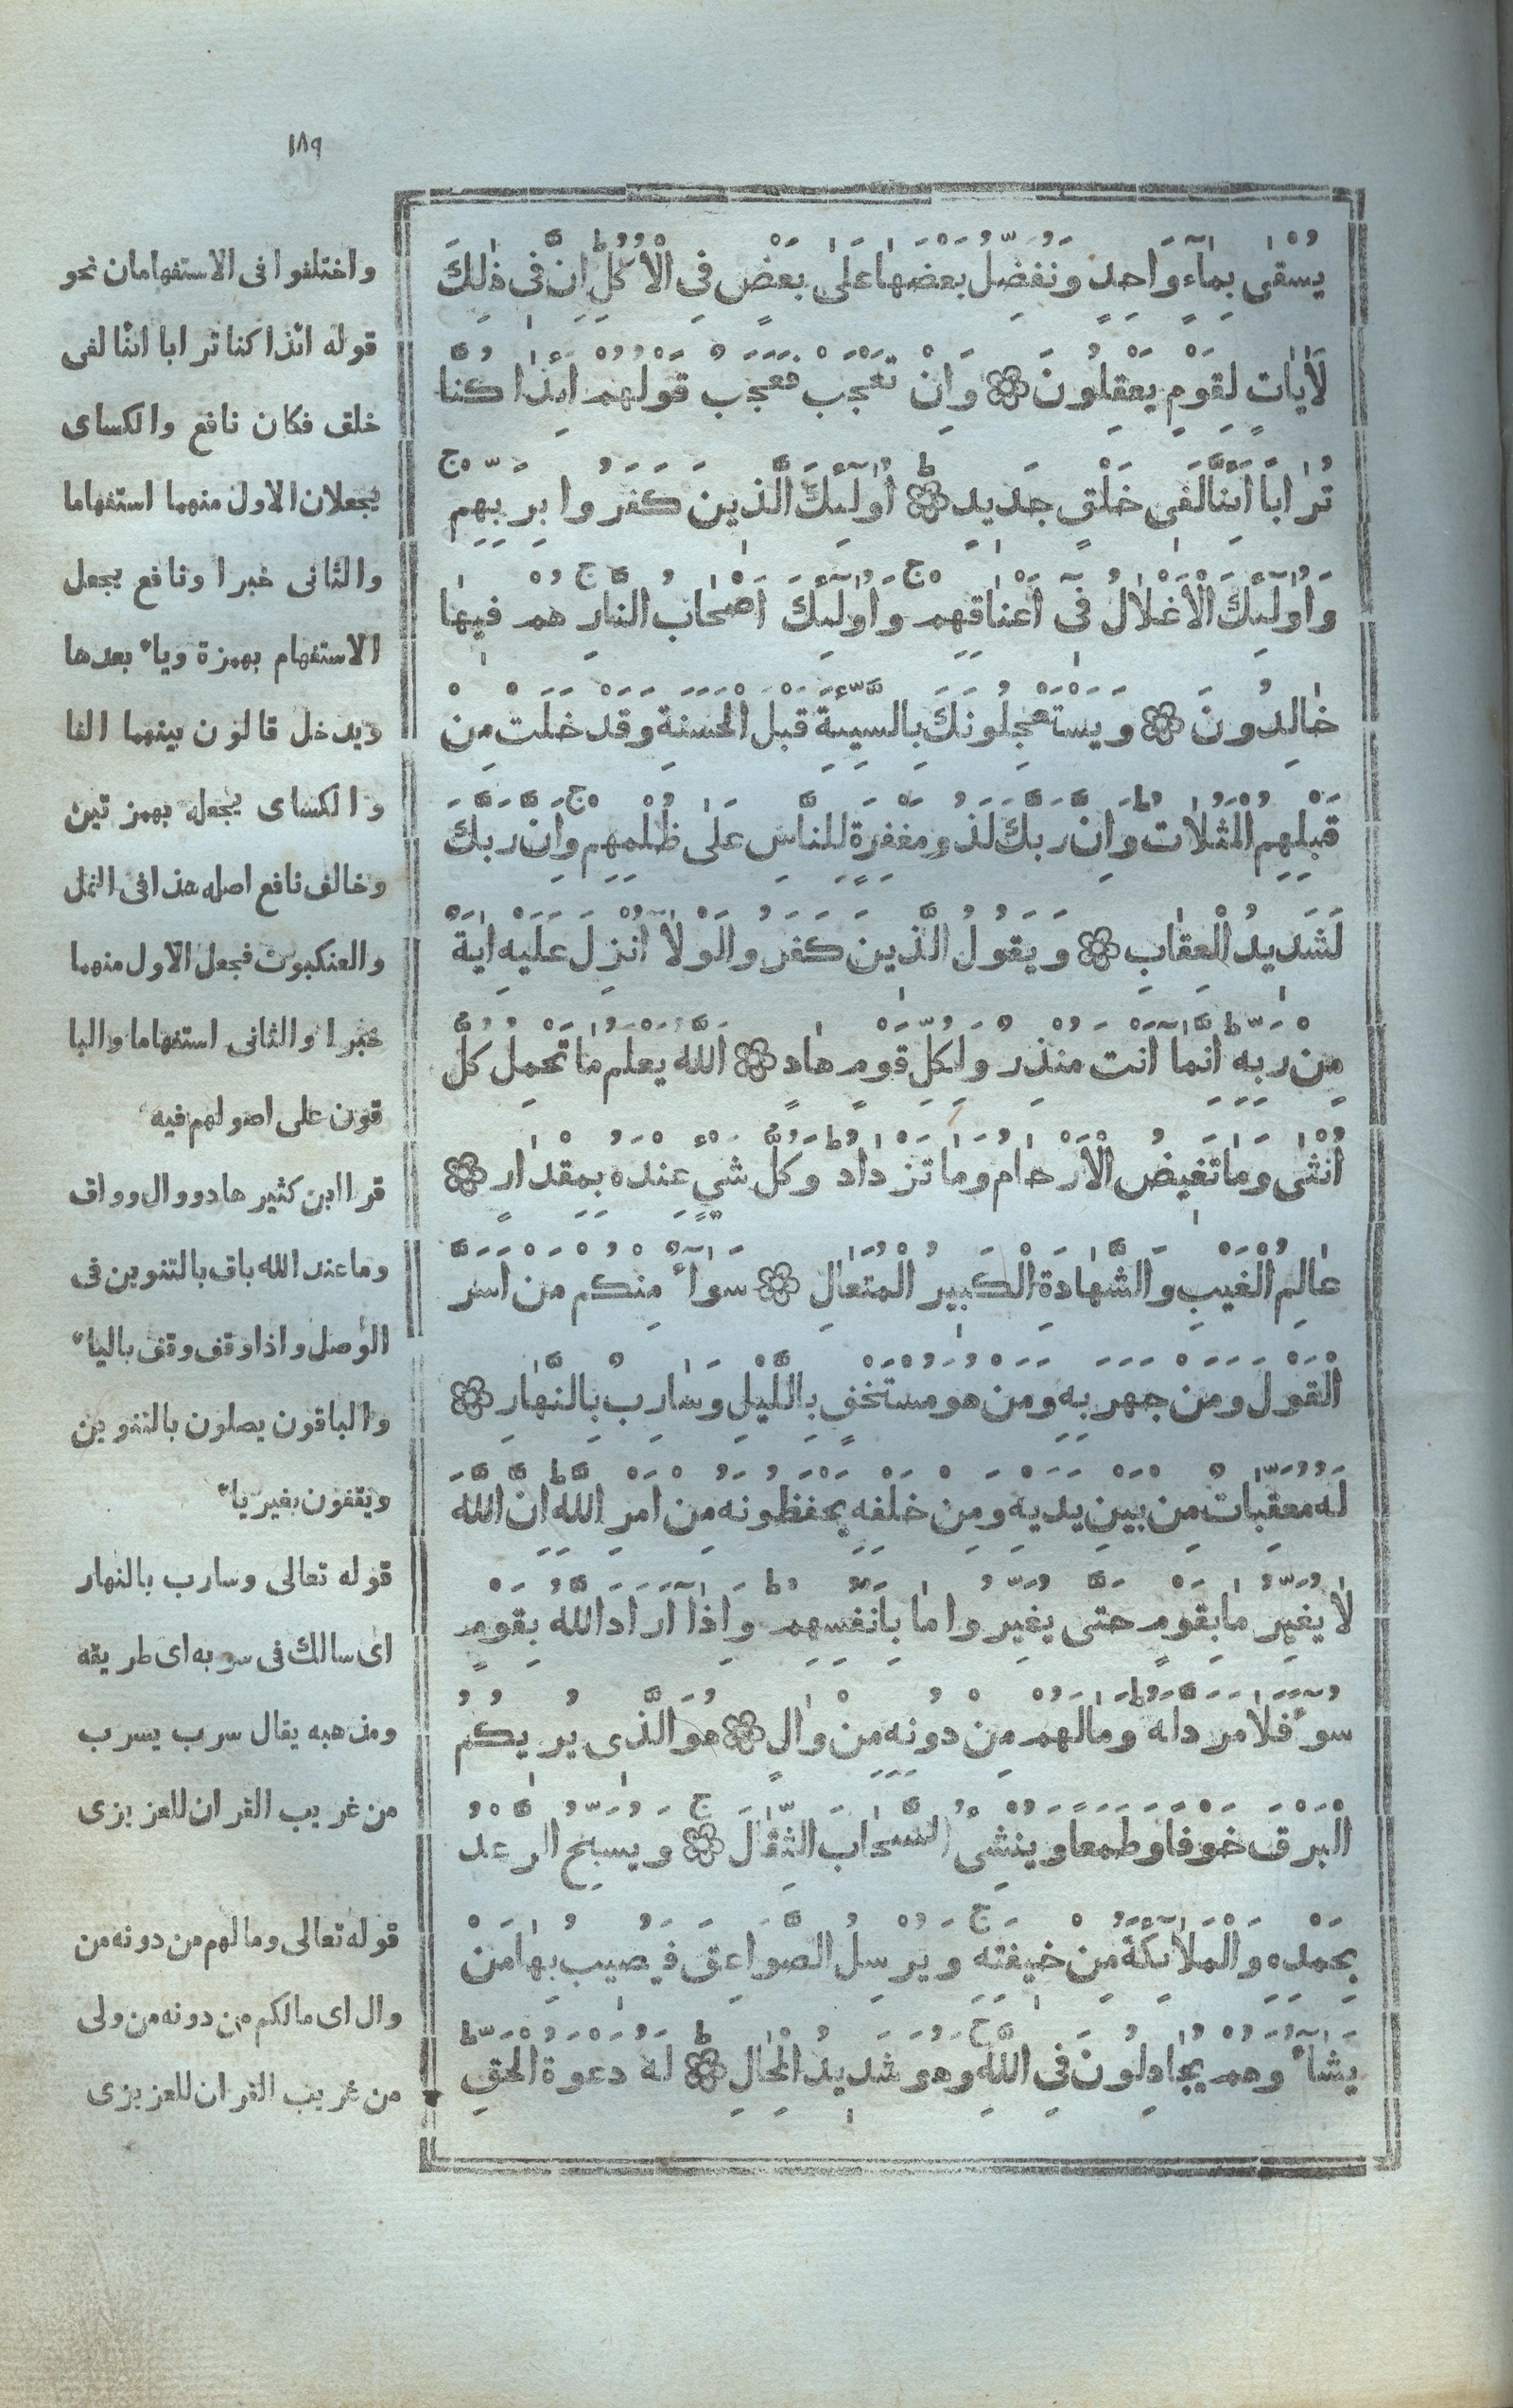 ١٨٩
يُسْقٰى بِمٰٓاءٍ وٰاحِدٍ وَنُفَضِّلُ بَعْضَهٰا عَلٰى بَعْضٍ فِى الْاُكُلِ ؕ اِنَّ فِى ذٰلِكَ
لَاٰيٰاتٍ لِقَوْمٍ يَعْقِلُونَ ۞ وَاِنْ تَعْجَبْ فَعَجَبٌ قَوْلُهُمْ ءَاِذٰا كُنَّا
تُرٰاباً اَئِنَّا لَفٖى خَلْقٍ جَدٖيدٍ ؕ ۞ اُولٰٓئِكَ الَّذٖينَ كَفَرُوا بِرَبِّهِمْ ۚ
وَاُولٰٓئِكَ الْاَغْلٰالُ فٖٓى اَعْنٰاقِهِمْ ۚ وَاُولٰٓئِكَ اَصْحٰابُ النَّارِ ۚ هُمْ فٖيهٰا
خٰالِدُونَ ۞ وَيَسْتَعْجِلُونَكَ بِالسَّيِّئَةِ قَبْلَ الْحَسَنَةِ وَقَدْ خَلَتْ مِنْ
قَبْلِهِمُ الْمَثُلٰاتُ ؕ وَاِنَّ رَبَّكَ لَذُو مَغْفِرَةٍ لِلنَّاسِ عَلٰى ظُلْمِهِمْ ۚ وَاِنَّ رَبَّكَ
لَشَدٖيدُ الْعِقٰابِ ۞ وَيَقُولُ الَّذٖينَ كَفَرُوا لَوْلٰٓا اُنْزِلَ عَلَيْهِ اٰيَةٌ
مِنْ رَبِّهٖ ؕ اِنَّمٰٓا اَنْتَ مُنْذِرٌ وَلِكُلِّ قَوْمٍ هٰادٍ ۞ اَللّٰهُ يَعْلَمُ مٰا تَحْمِلُ كُلُّ
اُنْثٰى وَمٰا تَغٖيضُ الْاَرْحٰامُ وَمٰا تَزْدٰادُ ؕ وَكُلُّ شَىْءٍ عِنْدَهُ بِمِقْدٰارٍ ۞
عٰالِمُ الْغَيْبِ وَالشَّهٰادَةِ الْكَبٖيرُ الْمُتَعٰالِ ۞ سَوٰٓاءٌ مِنْكُمْ مَنْ اَسَرَّ
الْقَوْلَ وَمَنْ جَهَرَ بِهٖ وَمَنْ هُوَ مُسْتَخْفٍ بِاللَّيْلِ وَسٰارِبٌ بِالنَّهٰارِ ۞
لَهُ مُعَقِّبٰاتٌ مِنْ بَيْنِ يَدَيْهِ وَمِنْ خَلْفِهٖ يَحْفَظُونَهُ مِنْ اَمْرِ اللّٰهِ ؕ اِنَّ اللّٰهَ
لٰا يُغَيِّرُ مٰا بِقَوْمٍ حَتّٰى يُغَيِّرُوا مٰا بِاَنْفُسِهِمْ ؕ وَاِذٰٓا اَرٰادَ اللّٰهُ بِقَوْمٍ
سُوٓءًا فَلٰا مَرَدَّ لَهُ ؕ وَمٰا لَهُمْ مِنْ دُونِهٖ مِنْ وٰالٍ ۞ هُوَ الَّذٖى يُرٖيكُمُ
الْبَرْقَ خَوْفًا وَطَمَعًا وَيُنْشِئُ السَّحٰابَ الثِّقٰالَ ۚ ۞ وَيُسَبِّحُ الرَّعْدُ
بِحَمْدِهٖ وَالْمَلٰٓائِكَةُ مِنْ خٖيفَتِهٖ ۚ وَيُرْسِلُ الصَّوٰاعِقَ فَيُصٖيبُ بِهٰا مَنْ
يَشٰٓاءُ وَهُمْ يُجٰادِلُونَ فِى اللّٰهِ ۚ وَهُوَ شَدٖيدُ الْمِحٰالِ ؕ ۞ لَهُ دَعْوَةُ الْحَقِّ ؕ
واختلفوا فى الاستفهامان نحو
قوله ائذا كنا ترابا ائنا لفى
خلق فكان نافع والكساى
يجعلان الاول منهما استفهاما
والثانى خبرا ونافع يجعل
الاستفهام بهمزة وياء بعدها
ويدخل قالون بينهما الفا
والكساى يجعله بهمزتين
وخالف نافع اصله هذا فى النمل
والعنكبوت فجعل الاول منهما
خبرا والثانى استفهاما والبا
قون على اصولهم فيه
قرا ابن كثير هاد ووال وواق
وما عند الله باق بالتنوين فى
الوصل واذا وقف وقف بالياء
والباقون يصلون بالتنوين
ويقفون بغير ياء
قوله تعالى وسارب بالنهار
اى سالك فى سربه اى طريقه
ومذهبه يقال سرب يسرب
من غريب القران للعزيزى
قوله تعالى وما لهم من دونه من
وال اى ما لكم من دونه من ولى
من غريب القران للعزيزى